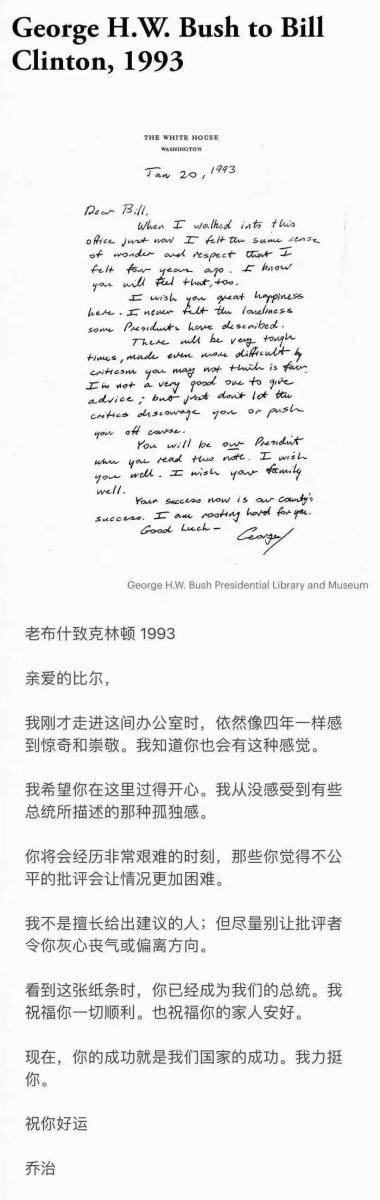 George H.W. Bush to Bill
Clinton, 1993
THE WHITE HOUSE
WASHINGTON
Jan 20, 1993
Dear Bill,
When I walked into this
office just now I felt the same sense
of wonder and respect that I
felt four years ago. I know
you will feel that, too.
I wish you great happiness
here. I never felt the loneliness
some Presidents have described.
There will be very tough
times, made even more difficult by
criticism you may not think is fair.
I'm not a very good one to give
advice; but just don't let the
critics discourage you or push
you off course.
You will be our President
when you read this note. I wish
you well. I wish your family
well.
Your success now is our country's
success. I am rooting hard for you.
Good Luck -
George
George H.W. Bush Presidential Library and Museum
老布什致克林顿 1993
亲爱的比尔，
我刚才走进这间办公室时，依然像四年一样感
到惊奇和崇敬。我知道你也会有这种感觉。
我希望你在这里过得开心。我从没感受到有些
总统所描述的那种孤独感。
你将会经历非常艰难的时刻，那些你觉得不公
平的批评会让情况更加困难。
我不是擅长给出建议的人；但尽量别让批评者
令你灰心丧气或偏离方向。
看到这张纸条时，你已经成为我们的总统。我
祝福你一切顺利。也祝福你的家人安好。
现在，你的成功就是我们国家的成功。我力挺
你。
祝你好运
乔治